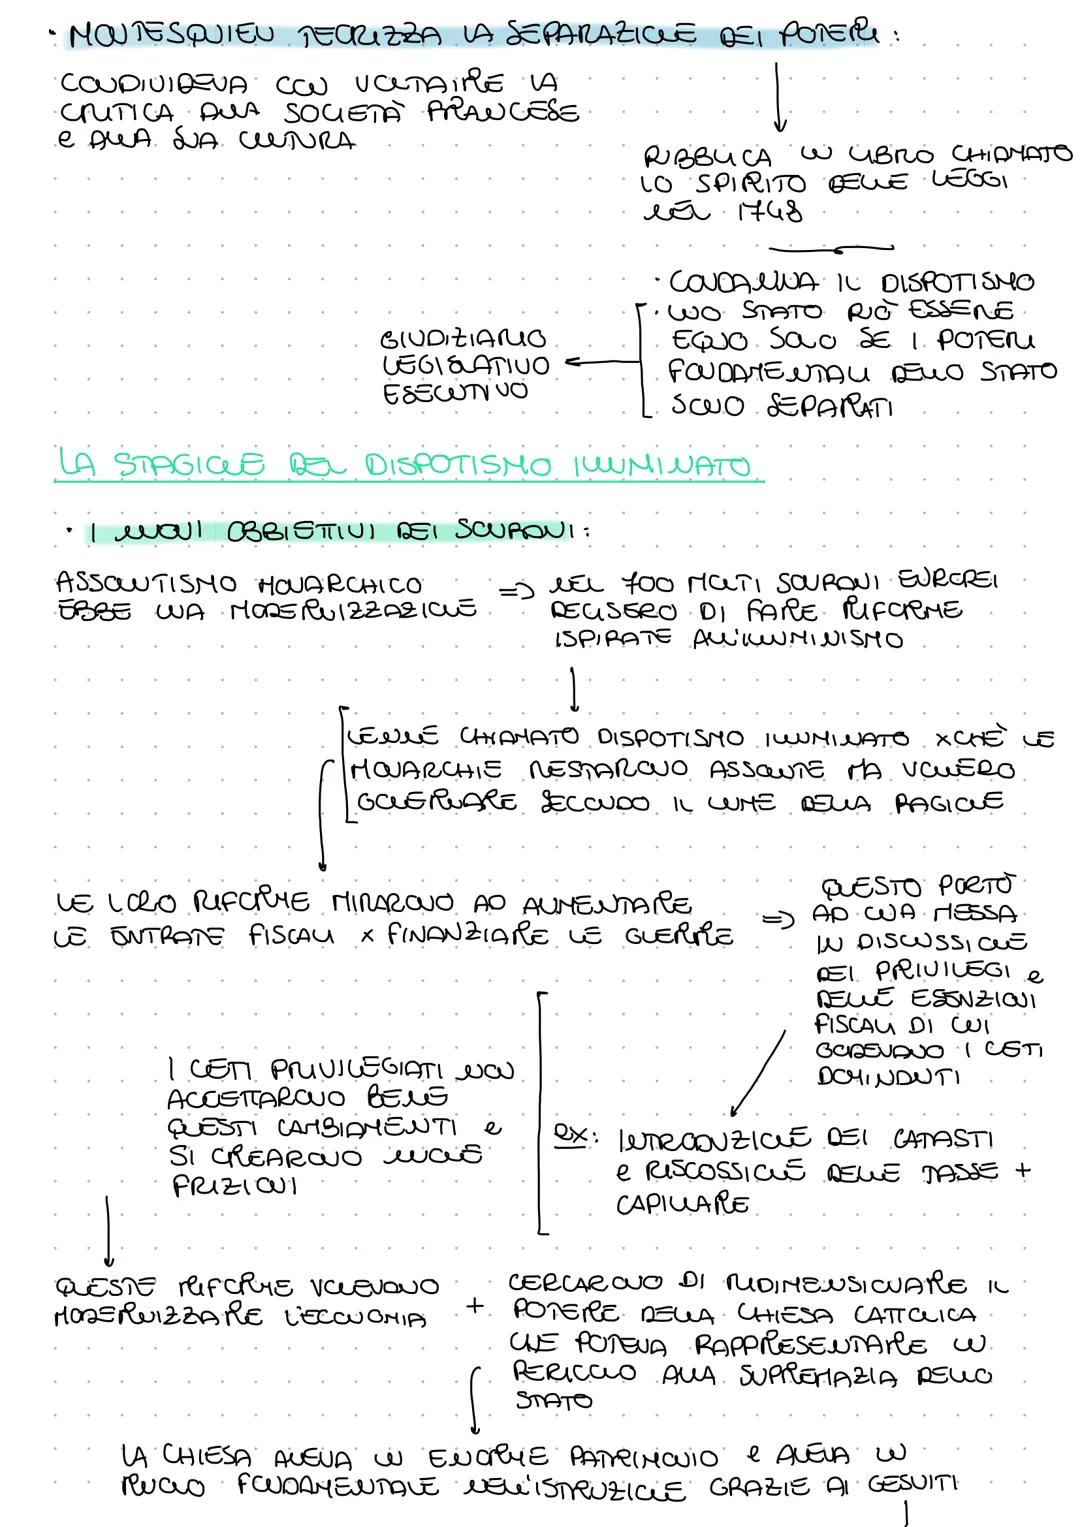 · MONTESQUIEU TEORIZZA LA SEPARAZIONE DEI POTERI:
CONDIVIDEVA CON VOLTAIRE LA
CRITICA ALLA SOCIETÀ FRANCESE
e ALLA SUA CULTURA
PUBBLICA UN LIBRO CHIAMATO
LO SPIRITO DELLE LEGGI
NEL 1748
· CONDANNA IL DISPOTISMO
· UNO STATO PUÒ ESSERE
EQUO SOLO SE I POTERI
FONDAMENTALI DELLO STATO
SONO SEPARATI
GIUDIZIARIO
LEGISLATIVO
ESECUTIVO
LA STAGIONE DEL DISPOTISMO ILLUMINATO
· I NUOVI OBBIETTIVI DEI SOVRANI:
ASSOLUTISMO MONARCHICO
EBBE UNA MODERNIZZAZIONE
=> NEL 700 MOLTI SOVRANI EUROPEI
DECISERO DI FARE RIFORME
ISPIRATE ALL'ILLUMINISMO
VENNE CHIAMATO DISPOTISMO ILLUMINATO XCHÈ LE
MONARCHIE RESTARONO ASSOLUTE MA VOLLERO
GOVERNARE SECONDO IL LUME DELLA RAGIONE
LE LORO RIFORME MIRARONO AD AUMENTARE
LE ENTRATE FISCALI X FINANZIARE LE GUERRE
=> QUESTO PORTÒ
AD UNA MESSA
IN DISCUSSIONE
DEI PRIVILEGI e
DELLE ESENZIONI
FISCALI DI CUI
GODEVANO I CETI
DOMINANTI
I CETI PRIVILEGIATI NON
ACCETTARONO BENE
QUESTI CAMBIAMENTI e
SI CREARONO NUOVE
FRIZIONI
ex: INTRODUZIONE DEI CATASTI
e RISCOSSIONE DELLE TASSE +
CAPILLARE
QUESTE RIFORME VOLEVANO
MODERNIZZARE L'ECONOMIA
+ CERCARONO DI RIDIMENSIONARE IL
POTERE DELLA CHIESA CATTOLICA
CHE POTEVA RAPPRESENTARE UN
PERICOLO ALLA SUPREMAZIA DELLO
STATO
LA CHIESA AVEVA UN ENORME PATRIMONIO e AVEVA UN
RUOLO FONDAMENTALE NELL'ISTRUZIONE GRAZIE AI GESUITI